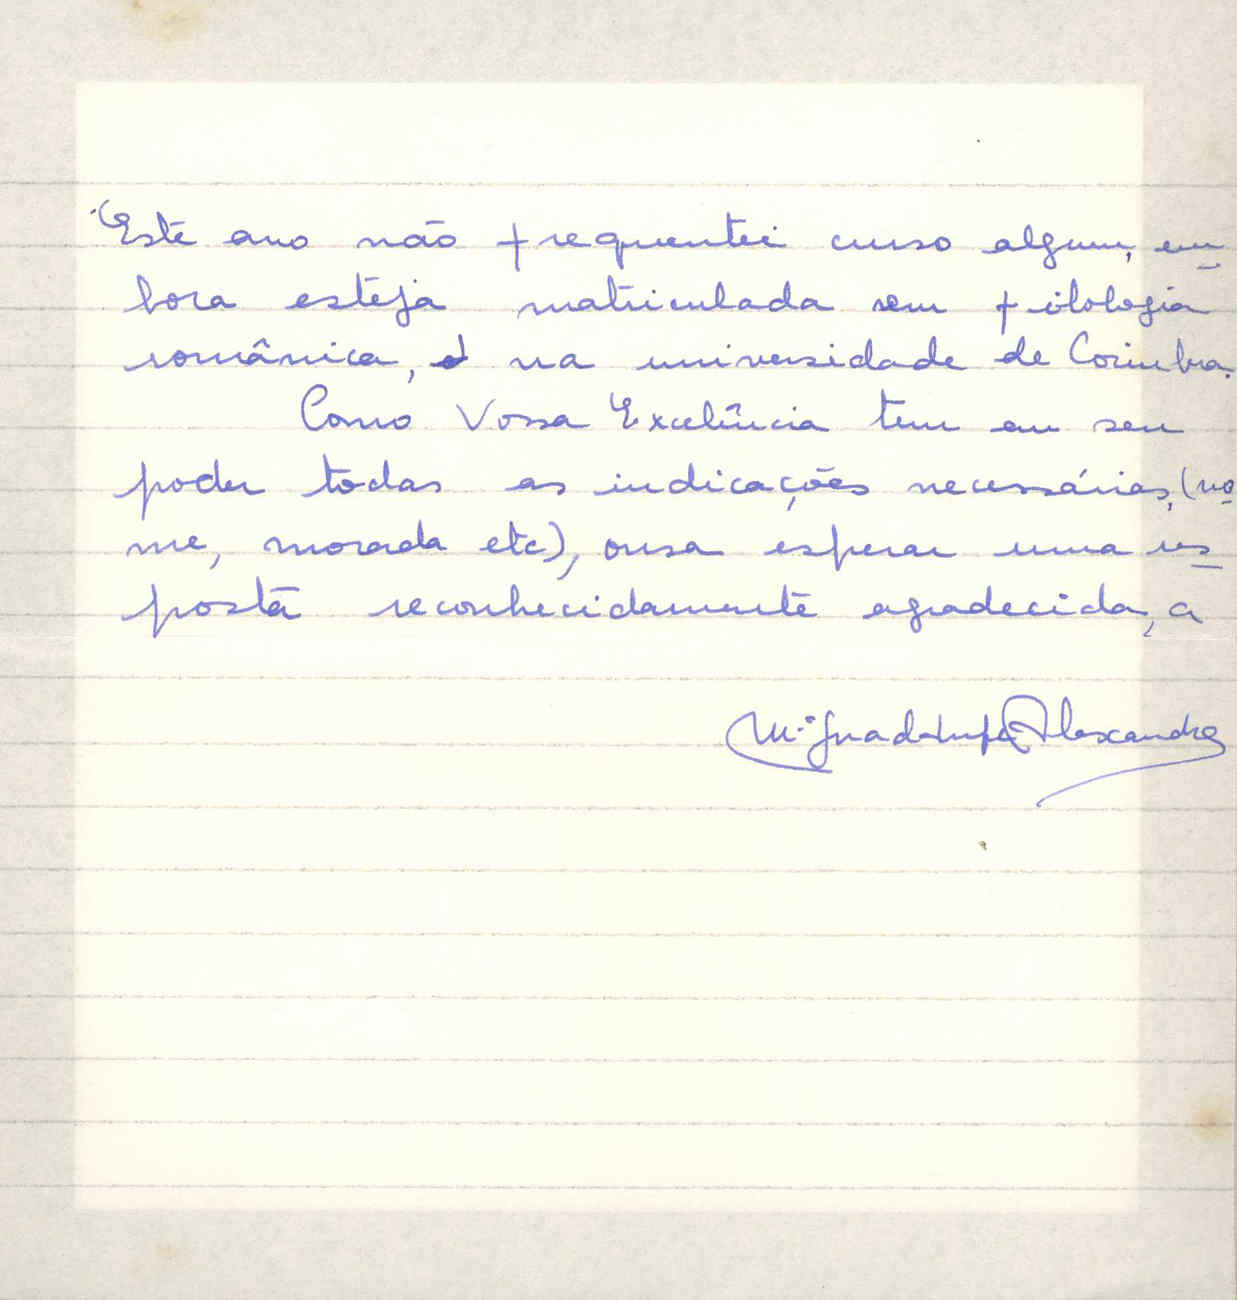 Este ano não frequentei curso algum, em
bora esteja matriculada em filologia
românica, na universidade de Coimbra.
Como Vossa Excelência tem em seu
poder todas as indicações necessárias, (no
me, morada etc), ousa esperar uma res
posta reconhecidamente agradecida, a
M.ª Guadalupe Alexandre